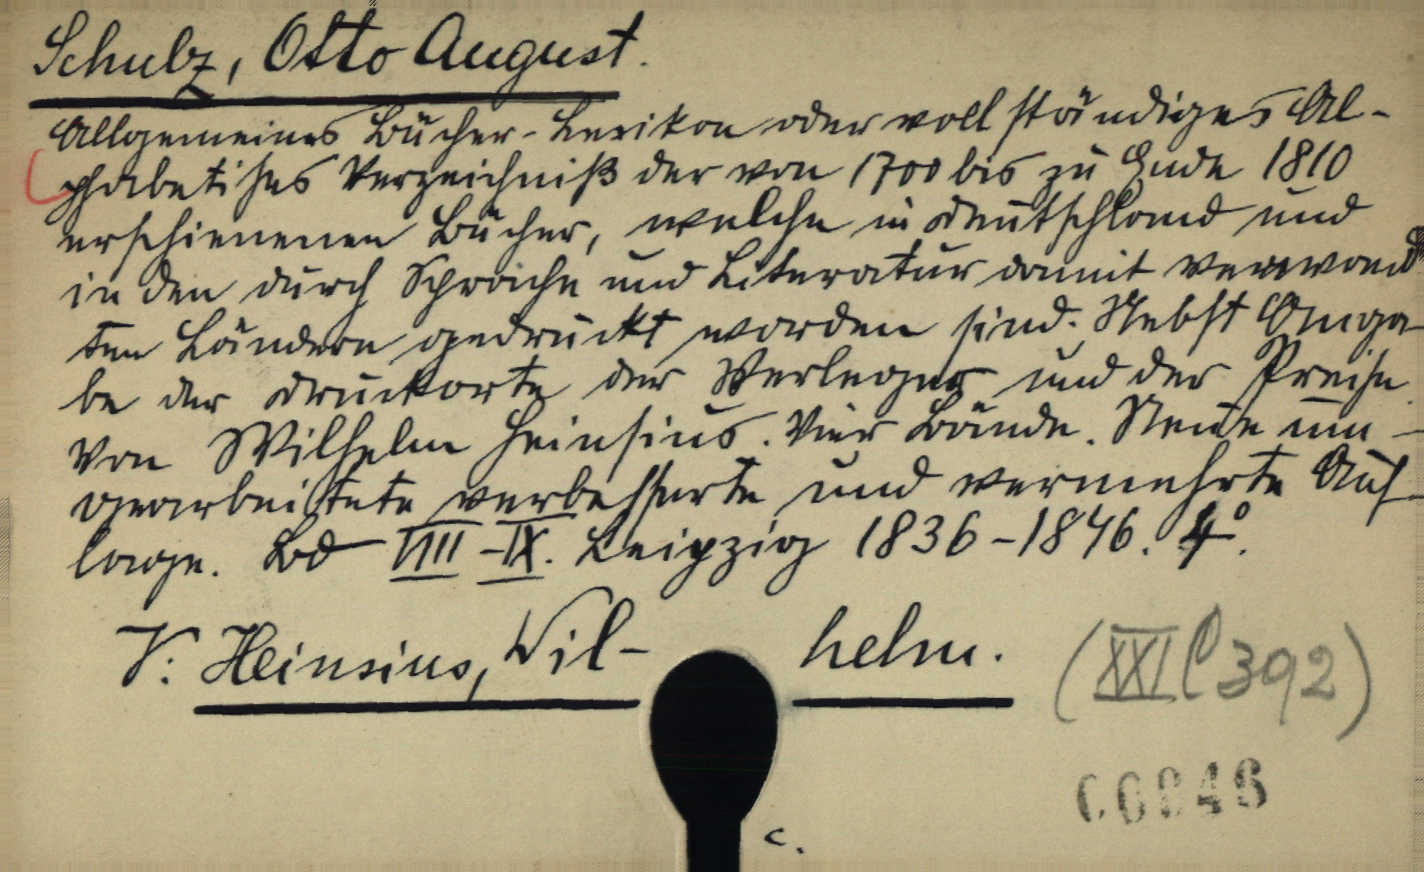 Schulz, Otto August.
Allgemeines Bücher-Lexikon oder vollständiges Al-
phabetisches Verzeichniß der von 1700 bis zu Ende 1810
erschienenen Bücher, welche in Deutschland und
in den durch Sprache und Literatur damit verwand
ten Ländern gedruckt worden sind. Nebst Anga
be der Druckorte der Verleger und der Preise.
Von Wilhelm Heinsius. Vier Bände. Neue um-
gearbeitete verbesserte und vermehrte Auf-
lage. Bd VIII-IX. Leipzig 1836-1846. 4°.
V: Heinsius, Wil- helm.
(XXI C 392)
c.